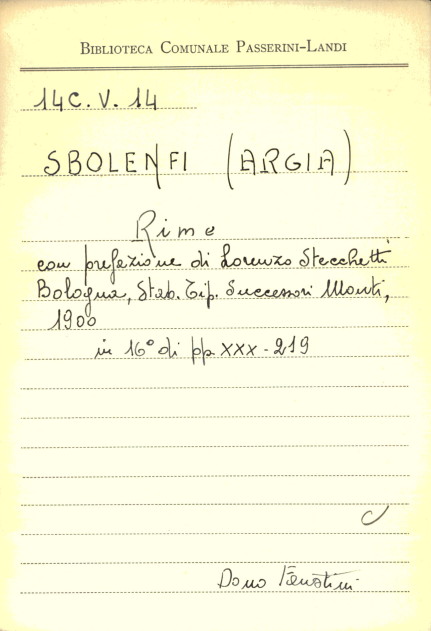 BIBLIOTECA COMUNALE PASSERINI-LANDI
14C. V. 14
SBOLENFI (ARGIA)
Rime
con prefazione di Lorenzo Stecchetti
Bologna, Stab. Tip. Successori Monti,
1900
in 16° di pp XXX-219
Dono